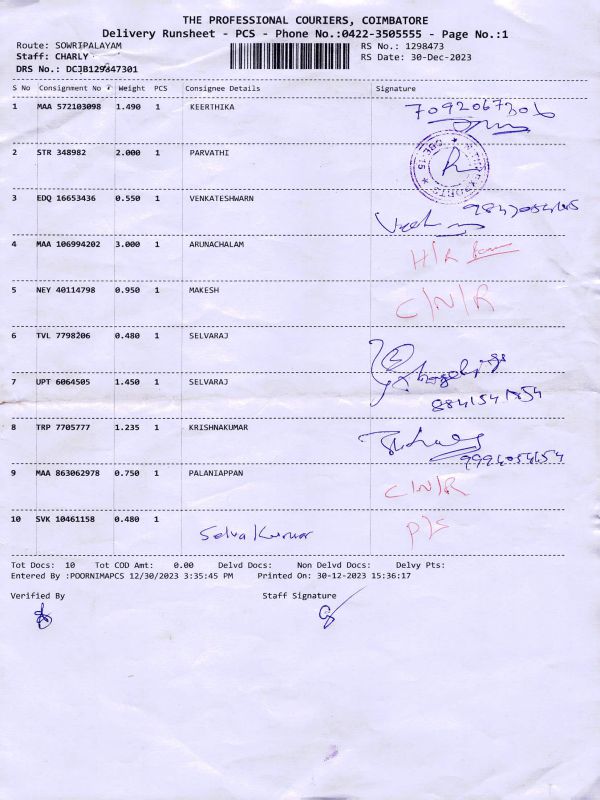 THE PROFESSIONAL COURIERS, COIMBATORE
Delivery Runsheet - PCS - Phone No.:0422-3505555 - Page No.:1
Route: SOWRIPALAYAM RS No.: 1298473
Staff: CHARLY RS Date: 30-Dec-2023
DRS No.: DCJB129847301
S No Consignment No Weight PCS Consignee Details Signature
1 MAA 572103098 1.490 1 KEERTHIKA 7092067306
2 STR 348982 2.000 1 PARVATHI
3 EDQ 16653436 0.550 1 VENKATESHWARN
4 MAA 106994202 3.000 1 ARUNACHALAM H/R
5 NEY 40114798 0.950 1 MAKESH C/N/R
6 TVL 7798206 0.480 1 SELVARAJ
7 UPT 6064505 1.450 1 SELVARAJ
8 TRP 7705777 1.235 1 KRISHNAKUMAR
9 MAA 863062978 0.750 1 PALANIAPPAN C/N/R
10 SVK 10461158 0.480 1 Selva Kumar P/S
Tot Docs: 10 Tot COD Amt: 0.00 Delvd Docs: Non Delvd Docs: Delvy Pts:
Entered By :POORNIMAPCS 12/30/2023 3:35:45 PM Printed On: 30-12-2023 15:36:17
Verified By Staff Signature